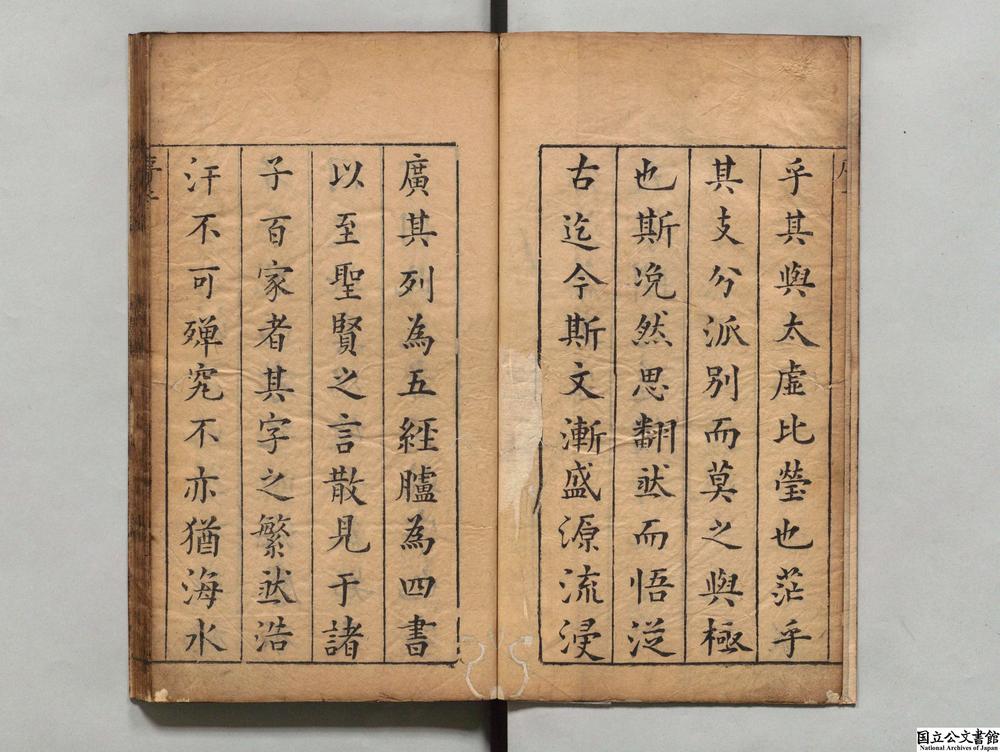 乎其與太虛比瑩也茫乎
其支分派別而莫之與極
也斯況然思翻然而悟從
古迄今斯文漸盛源流浸
廣其列為五經臚為四書
以至聖賢之言散見于諸
子百家者其字之繁然浩
汗不可殫究不亦猶海水
国立公文書館
National Archives of Japan